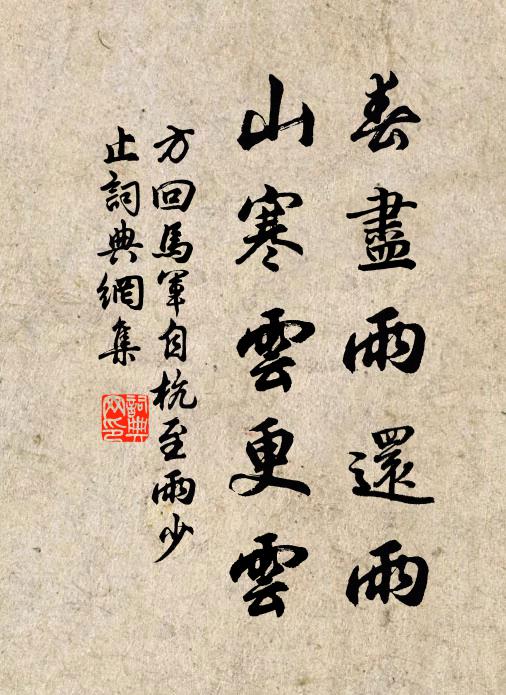 春盡雨還雨
山寒雲更雲
方回馬軍自杭至雨少
止詞典網集
詞典
网印